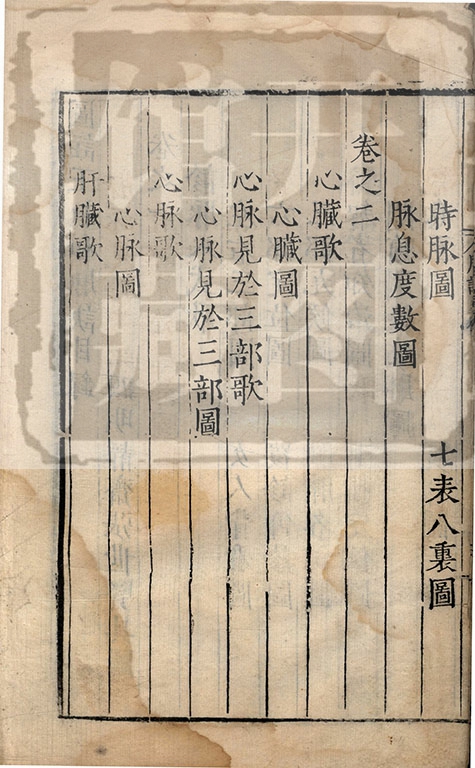 時脉圖 七表八裏圖
脉息度數圖
卷之二
心臟歌
心臟圖
心脉見於三部歌
心脉見於三部圖
心脉歌
心脉圖
肝臟歌